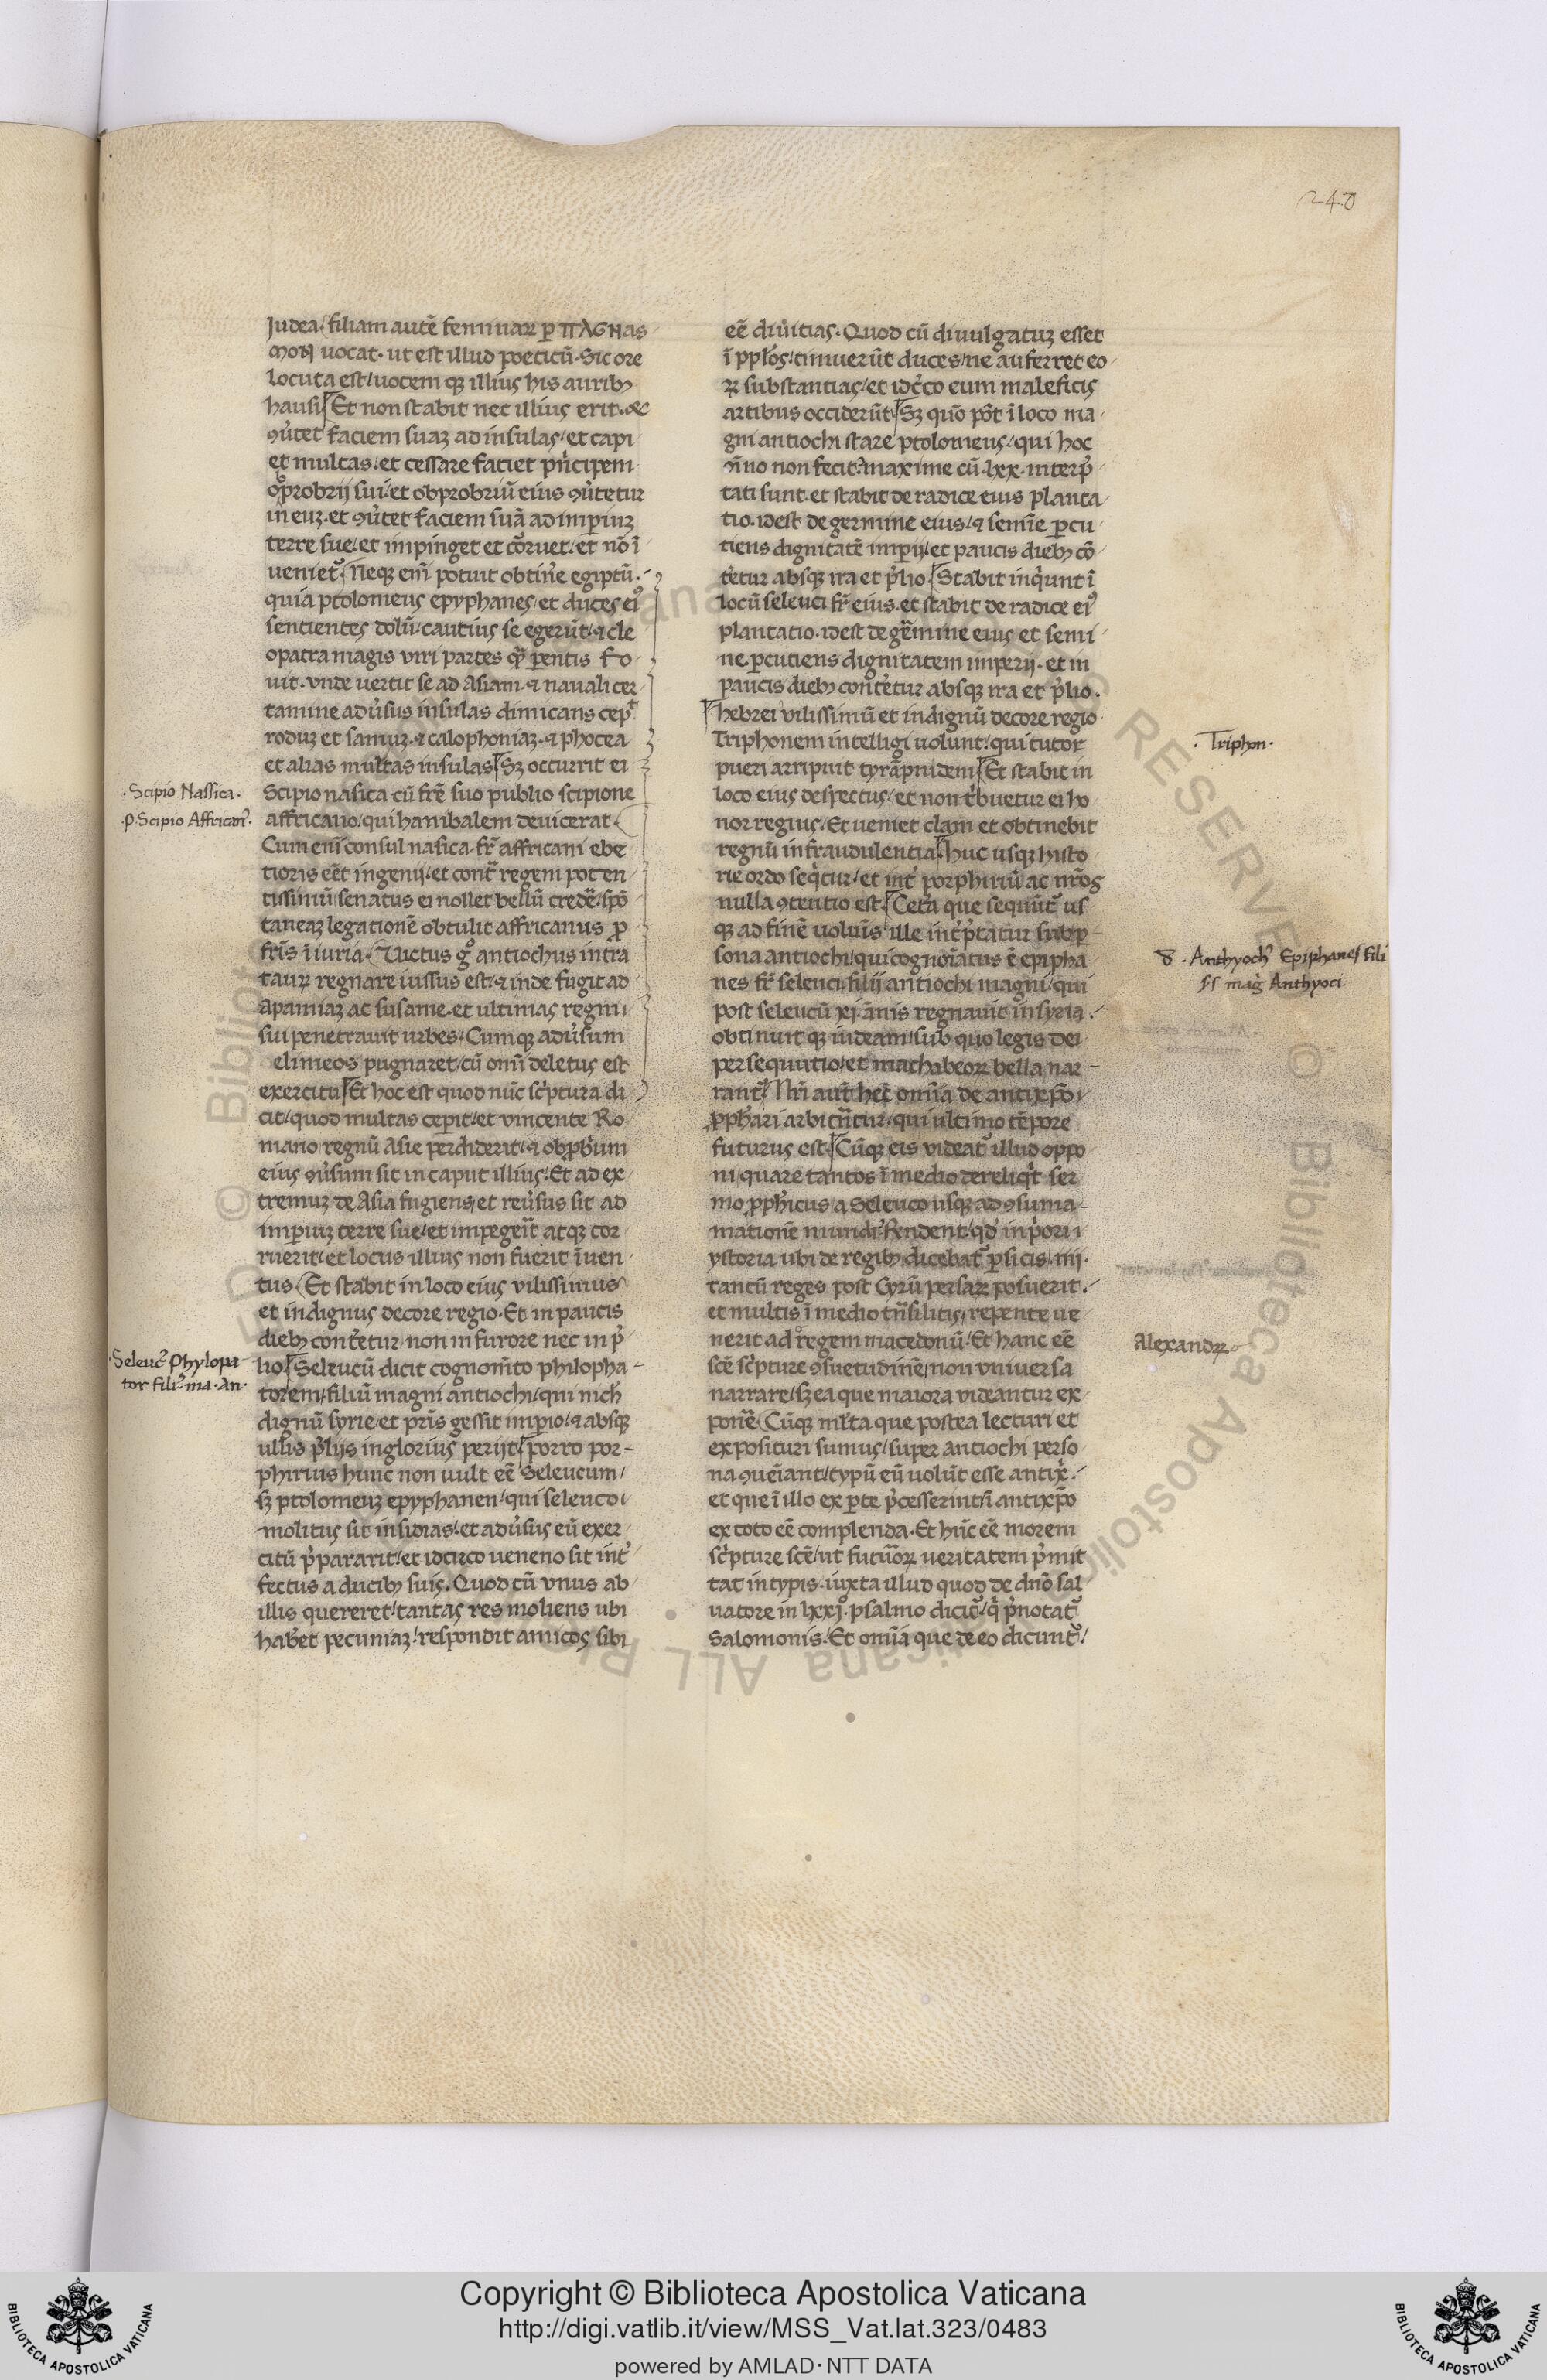 240
Iudea. filiam autē feminaꝝ ꝑ ΠΛΕΗas
mon uocat. ut est illud poeticū. Sic ore
locuta est/uocem qꝫ illius his auribꝫ
hausi Et non stabit nec illius erit. ⁊c
ꝯūtet faciem suaꝫ ad insulas/et capi
et multas. et cessare faciet pncipem
oprobrij sui. et obprobriū eius ꝯūtetur
in euꝫ. et ꝯūtet faciem suā ad imꝑiuꝫ
terre sue/et impinget et coruet/et nō ī
ueniet᷑. Neqꝫ enī potuit obtinē egiptū.
quia ptolomeus epyphanes/et duces eiꝰ
sentientes dolū/cautius se egerūt/⁊ cle
opatra magis viri partes qꝫ̄ ꝑentis fo
uit. vnde uertit se ad Asiam. ⁊ nauali cer
tamine adūsus insulas dimicans cepᷓ
roduꝫ et samuꝫ. ⁊ calophoniaꝫ. ⁊ phocea
et alias multas insulas Sꝫ occurrit ei
·Scipio Nassica·
Scipio nasica cū frē suo publio scipione
·P. Scipio Affrican᷒·
affricano/qui hanibalem deuicerat.
Cum enī consul nasica. fr̄ affricani ebe
tioris eēt ingenij/et contᷓ regem poten
tissimū senatus ei nollet bellū credē/spō
taneaꝫ legationē obtulit affricanus ꝓ
frīs īiuria. Victus gͦ antiochus intra
tauꝝ regnare iussus est/⁊ inde fugit ad
Apamiaꝫ ac susame. et ultimas regni
sui penetrauit urbes. Cumqꝫ adūsum
elimeos pugnaret/cū omī deletus est
exercitu Et hoc est quod nūc scptura di
cit/quod multas cepit/et vincente Ro
mano regnū Asie perdiderit/⁊ obpbrium
eius ꝯūsum sit in caput illius. Et ad ex
tremuꝫ de Asia fugiens/et reūsus sit ad
imꝑiuꝫ terre sue/et impegeīt atqꝫ cor
ruerit/et locus illius non fuerit īuen
tus. Et stabit in loco eius vilissimus
et indignus decore regio. Et in paucis
diebꝫ contetur/non in furore nec in p̄
Seleuc᷒ Phylopa
lio Seleucū dicit cognomīto philopha
tor fili᷒ ma. An.
torem/filiū magni antiochi/qui nich̄
dignū syrie et pr̄is gessit imꝑio/⁊ absqꝫ
ullis p̄lijs inglorius perijt porro por
phirius hunc non uult eē Seleucum/
sꝫ ptolomeuꝫ epyphanen/qui seleuco
molitus sit insidias/et adūsus eū exer
citū p̄pararit/et idcirco ueneno sit int̄
fectus a ducibꝫ suis. Quod cū vnus ab
illis quereret/tantas res moliens ubi
hab̄et pecuniaꝫ/respondit amicos sibi
eē diuitias. Quod cū diuulgatuꝫ esset
ī ppłos/timuerūt duces/ne auferret eo
ꝝ substantias/et idcco eum maleficis
artibus occiderūt Sꝫ quō pōt ī loco ma
gni antiochi stare ptolomeus/qui hoc
ōīno non fecit? maxime cū .lxx. interp̄
tati sunt. et stabit de radice eius planta
tio. idest de germine eius/⁊ semīe ꝑcu
tiens dignitatē imꝑij/et paucis diebꝫ cō
tetur absqꝫ ira et p̄lio. Stabit inqūnt ī
locū seleuci fr̄ eius. et stabit de radice eiꝰ
plantatio. idest de germine eius et semi
ne. ꝑcutiens dignitatem imperij. et in
paucis diebꝫ contetur absqꝫ ira et p̄lio.
hebrei vilissimū et indignū decore regio
·Triphon·
Triphonem intelligi uolunt/qui tutor
pueri arripuit tyrāpnidem Et stabit in
loco eius despectus/et non tbuetur ei ho
nor regius. Et ueniet clam et obtinebit
regnū in fraudulentia. Huc usqꝫ histo
rie ordo seqtur/et int̄ porphiriū ac nr̄os
nulla ꝯtentio est Cetā que sequūt᷑ us
qꝫ ad finē uoluīs ille intp̄tatur sub ꝑ
8. Anthyoch᷒ Epiphanes fili᷒
sona antiochi/qui cognoīatus ē epipha
ss mag̃ Anthyoci
nes fr̄ seleuci. filij antiochi magni/qui
post seleucū xj. ānis regnauit in syria.
obtinuit qꝫ iudeam/sub quo legis dei
persequutio/et machabeoꝝ bella nar
rant᷑ Nr̄i aut̄ hec omīa de antixp̄o
ꝓphari arbitrātur/qui ultimo tēpore
futurus est. Cūqꝫ eis videat᷑ illud oppo
ni/quare tantos ī medio dereliqt ser
mo ꝓphicus a Seleuco usqꝫ ad ꝯsuma
mationē mundi. Rn̄dent/qd̄ in pori
ystoria ubi de regibꝫ dicebat᷑ ꝑsicis. iiij.
tantū reges post Cyrū persaꝝ posuerit.
et multis ī medio tn̄silitis/repente ue
nerit ad regem macedonū. Et hanc eē
Alexandꝝ
scē scpture ꝯsuetudinē/non vniuersa
narrare/sꝫ ea que maiora videantur ex
ponē. Cūqꝫ ml̄ta que postea lecturi et
exposituri sumus/super antiochi perso
na ꝯueīant/typū eū uolūt esse antixp̄i.
et que ī illo ex ꝑte p̄cesserint/ī antixp̄o
ex toto eē complenda. Et hūc eē morem
scpture scē/ut futuoꝝ ueritatem p̄mit
tat in typis. iuxta illud quod de dn̄o sal
uatore in lxxjͦ. psalmo dicit᷑/q p̄notat᷑
Salomonis. Et omīa que de eo dicunt᷑/
Copyright © Biblioteca Apostolica Vaticana
http://digi.vatlib.it/view/MSS_Vat.lat.323/0483
powered by AMLAD·NTT DATA
BIBLIOTECA APOSTOLICA VATICANA
BIBLIOTECA APOSTOLICA VATICANA